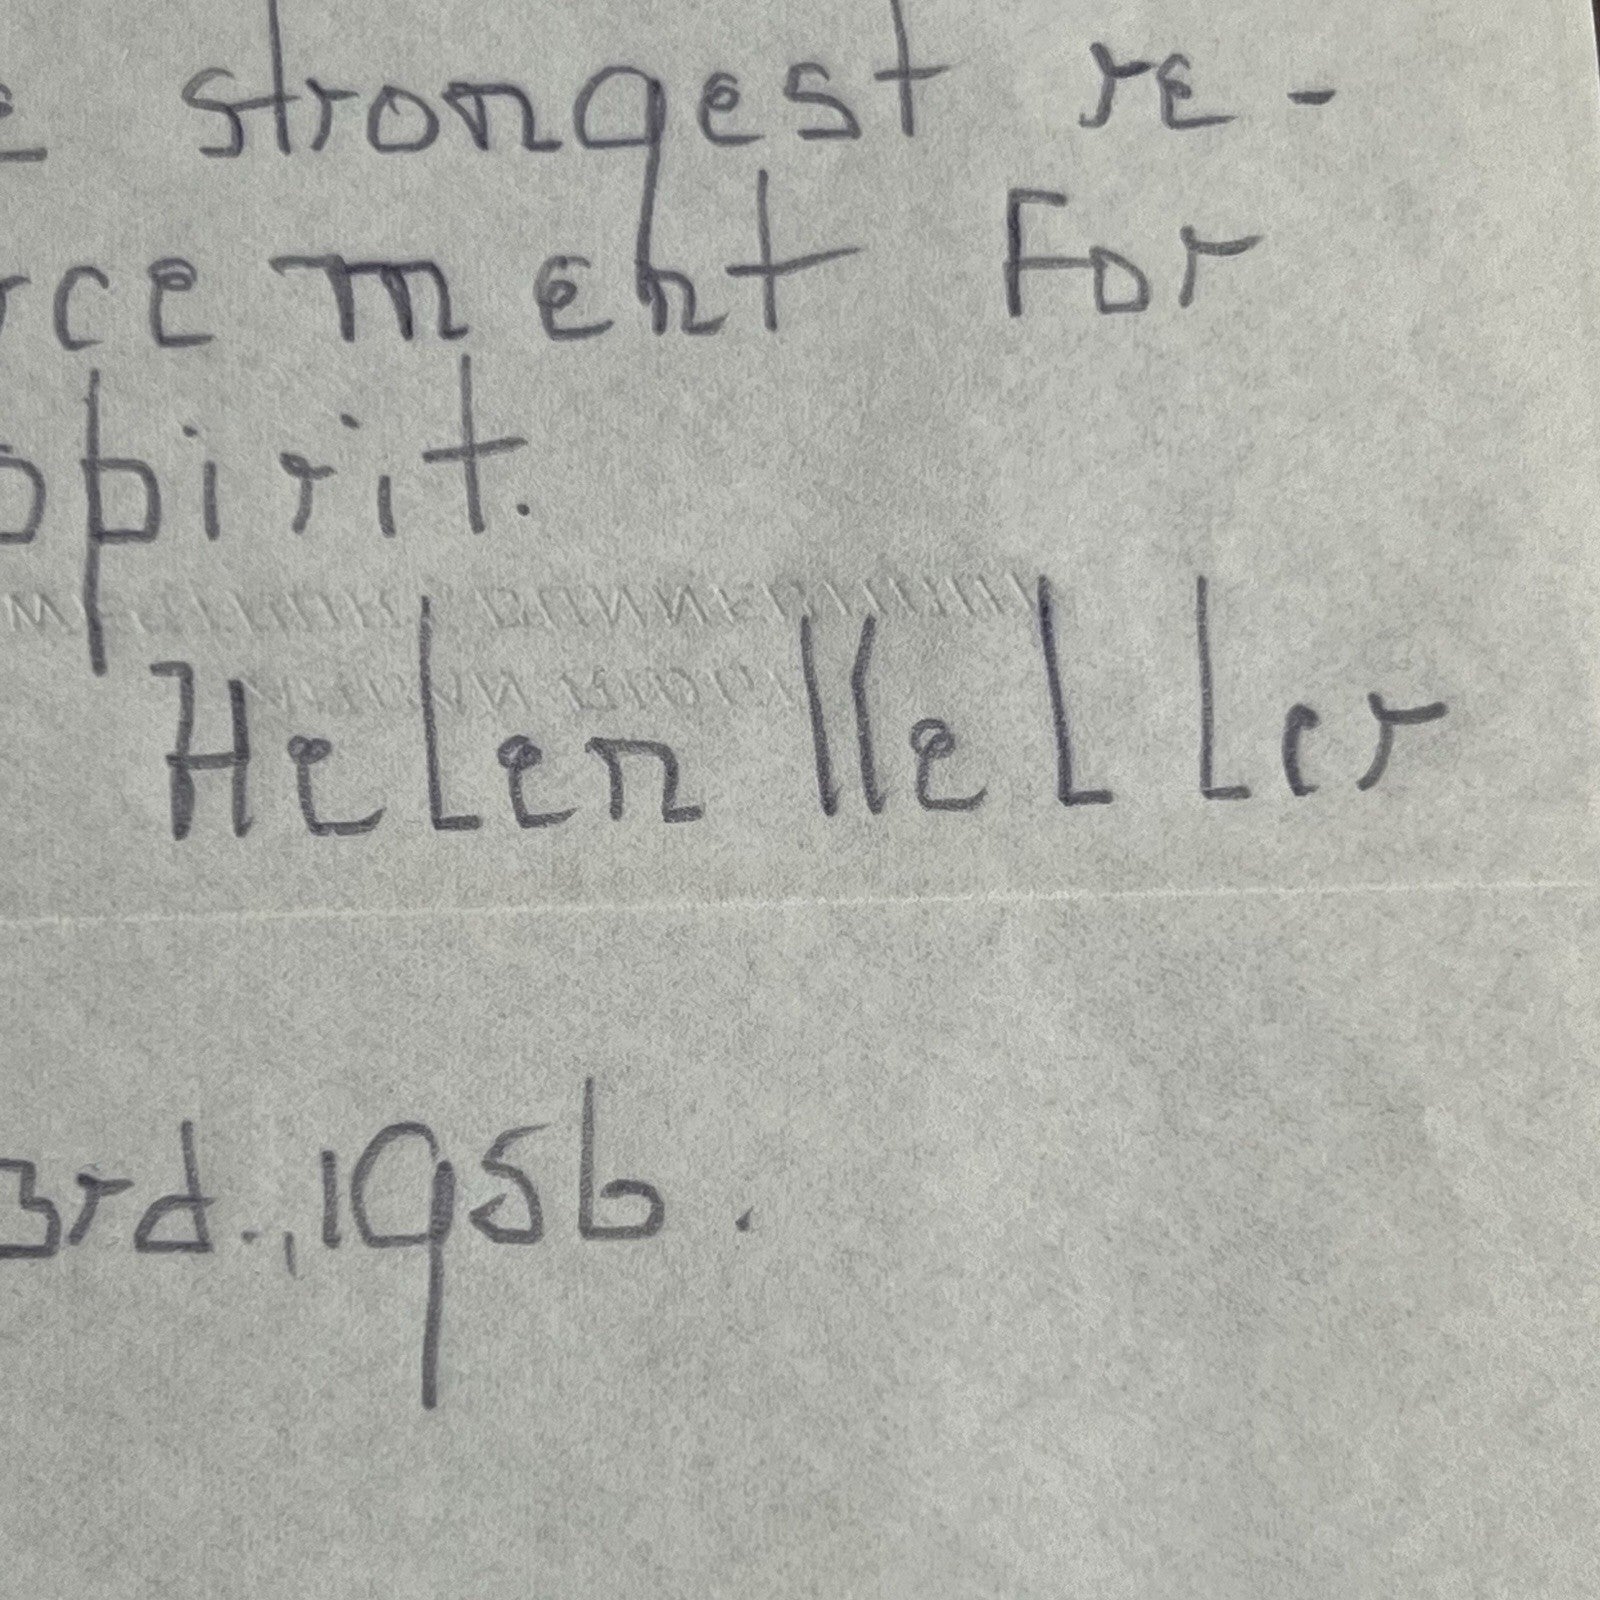 strongest re-
rcement For
pirit.
Helen Keller
3rd., 1956.